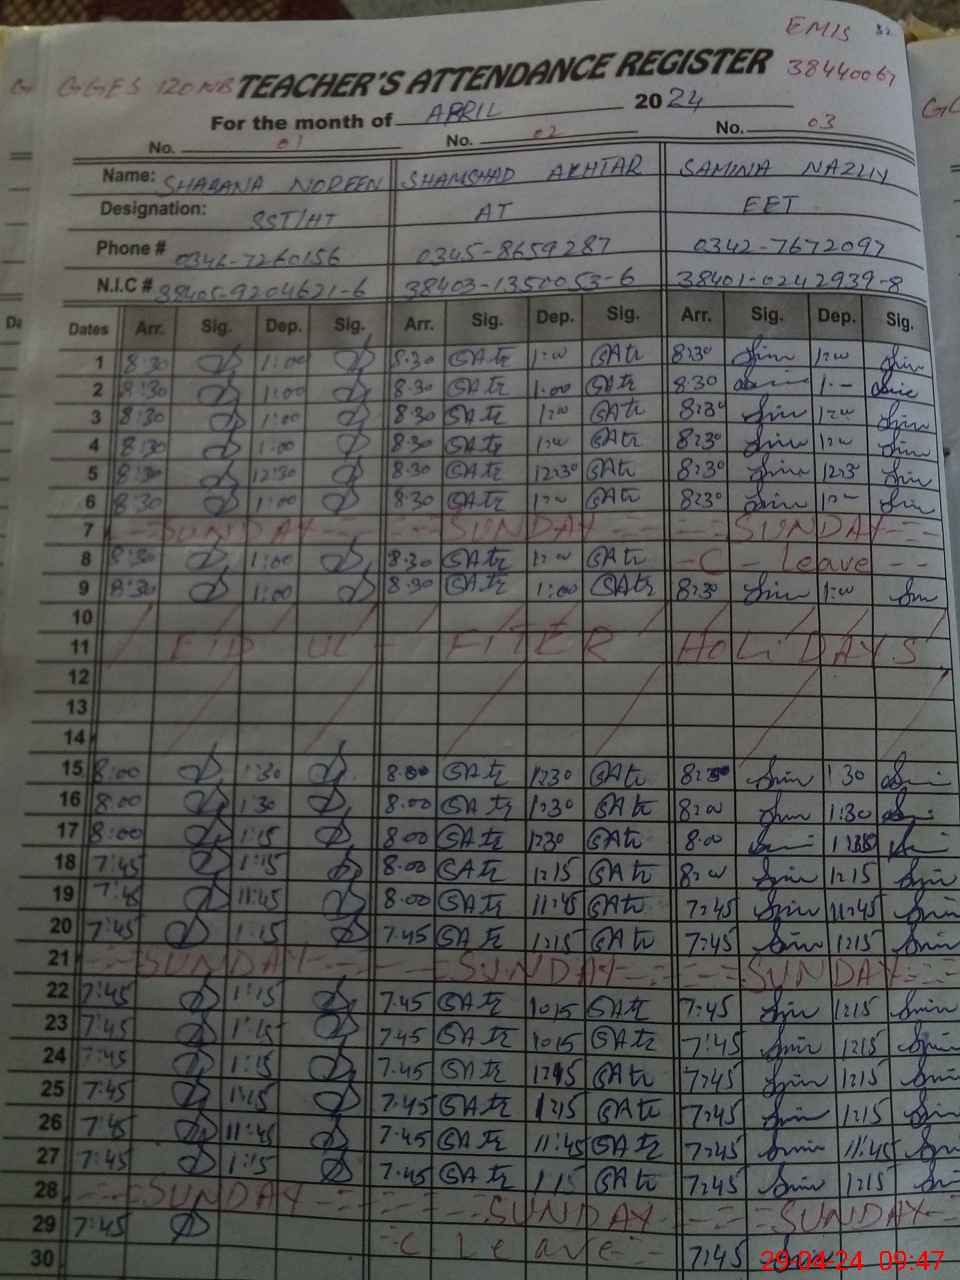 EMIS 82
GGES 120NB TEACHER'S ATTENDANCE REGISTER 38440067
For the month of APRIL 2024
No. 01 No. 02 No. 03
Name: SHABANA NOREEN SHAMSHAD AKHTAR SAMINA NAZLIY
Designation: SST/HT AT EET
Phone # 0346-7260156 0345-8659287 0342-7672097
N.I.C # 38405-9204621-6 38403-1350053-6 38401-0242939-8
Dates Arr. Sig. Dep. Sig. Arr. Sig. Dep. Sig. Arr. Sig. Dep. Sig.
1 8:30 1:00 8.30 1:00 8:30 1:00
2 8:30 1:00 8.30 1:00 8:30 1:-
3 8:30 1:00 8.30 1:00 8:30 1:00
4 8:30 1:00 8.30 1:00 8:30 1:00
5 8:30 12:30 8.30 12:30 8:30 12:30
6 8:30 1:00 8.30 1:00 8:30 1:-
7 SUNDAY SUNDAY SUNDAY
8 8:30 1:00 8.30 1:00 - C - Leave - -
9 8:30 1:00 8.30 1:00 8:30 1:00
10
11 EID UL - FITER HOLIDAYS
12
13
14
15 8:00 1:30 8.00 1:30 8:00 1:30
16 8:00 1:30 8.00 1:30 8:00 1:30
17 8:00 1:15 8.00 1:30 8:00
18 7:45 1:15 8.00 1:15 8:00 1:15
19 7:45 11:45 8.00 11:45 7:45 11:45
20 7:45 1:15 7.45 1:15 7:45 1:15
21 SUNDAY SUNDAY SUNDAY
22 7:45 1:15 7.45 7:45 1:15
23 7:45 1:15 7.45 7:45 1:15
24 7:45 1:15 7.45 7:45 1:15
25 7:45 1:15 7.45 1:15 7:45 1:15
26 7:45 11:45 7.45 11:45 7:45 11:45
27 7:45 1:15 7.45 1:15 7:45 1:15
28 SUNDAY SUNDAY SUNDAY
29 7:45 C Leave 7:45
30
29-04-24 09:47